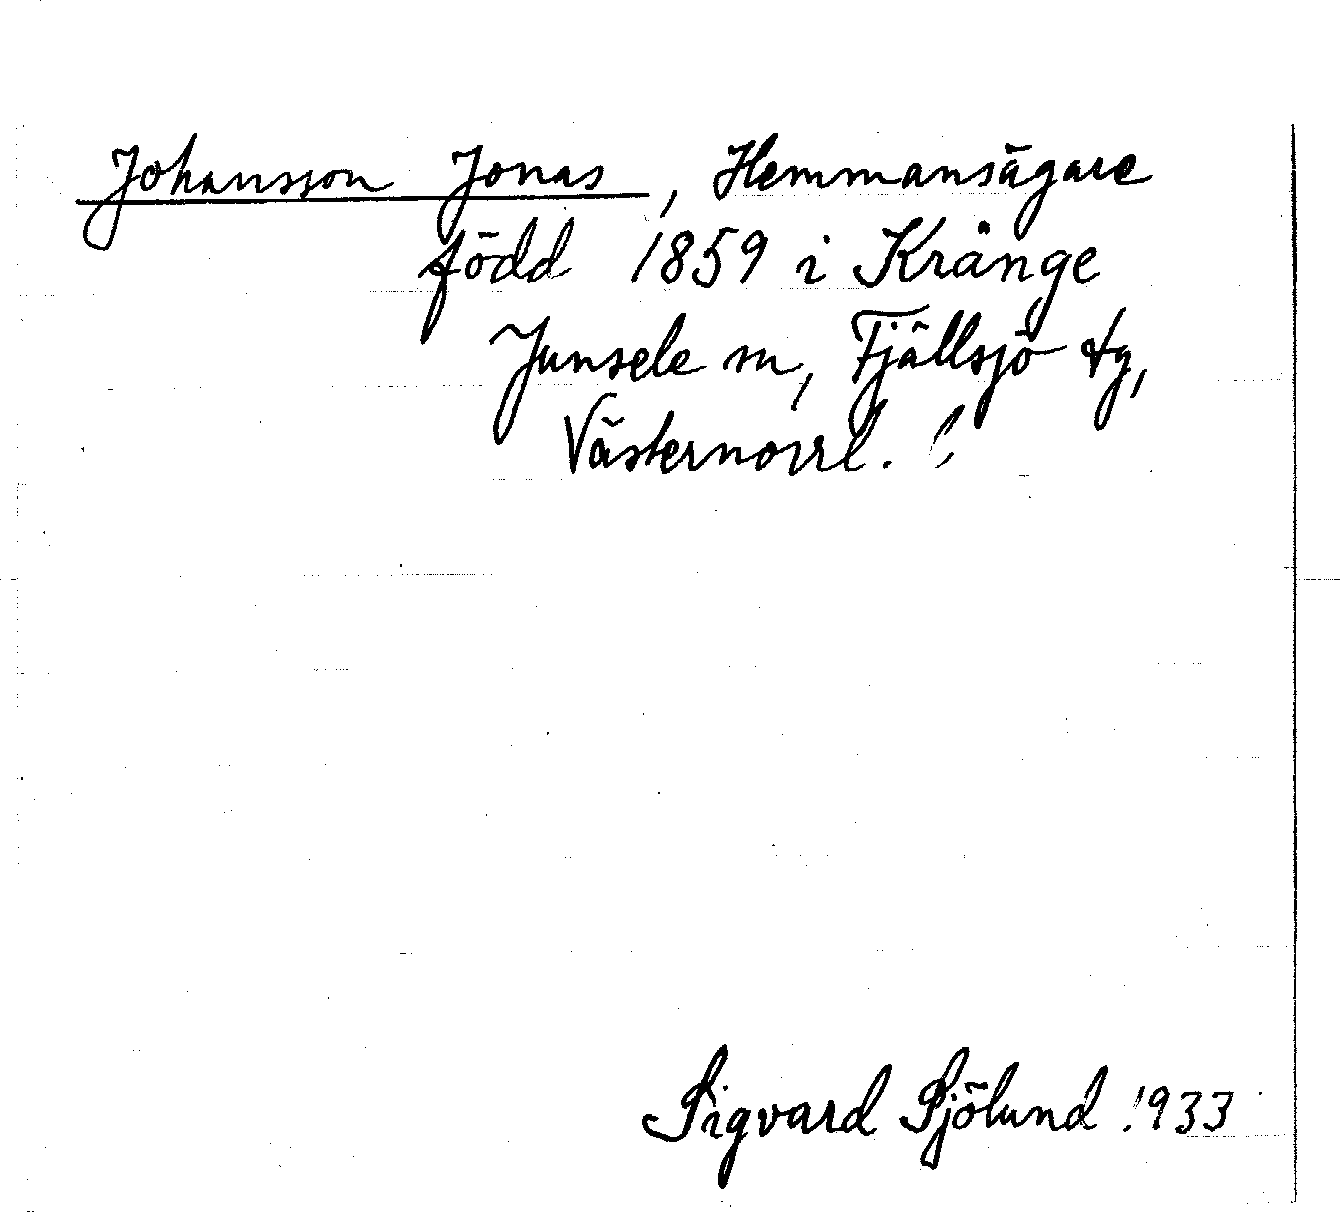 Johansson Jonas, Hemmansägare
född 1859 i Krånge
Junsele sn, Fjällsjö tg,
Västernorrl. l
Sigvard Sjölund 1933